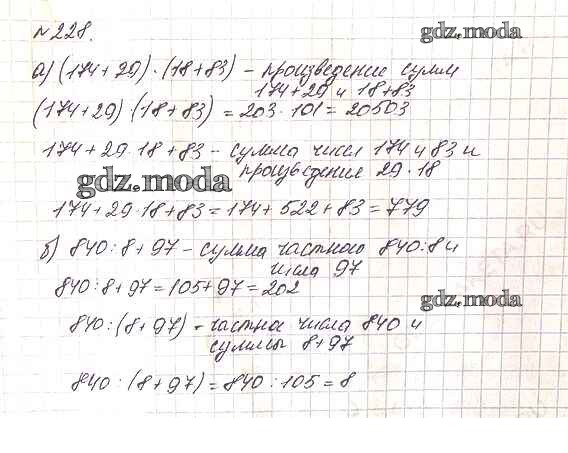 №228.
gdz.moda
а) (174+29)·(18+83) – произведение сумм
174+29 и 18+83
(174+29)·(18+83) = 203·101 = 20503
174+29·18+83 – сумма чисел 174 и 83 и
произведения 29·18
gdz.moda
174+29·18+83 = 174+522+83 = 779
б) 840:8+97 – сумма частного 840:8 и
числа 97
840:8+97 = 105+97 = 202
gdz.moda
840:(8+97) – частное числа 840 и
суммы 8+97
840:(8+97) = 840:105 = 8